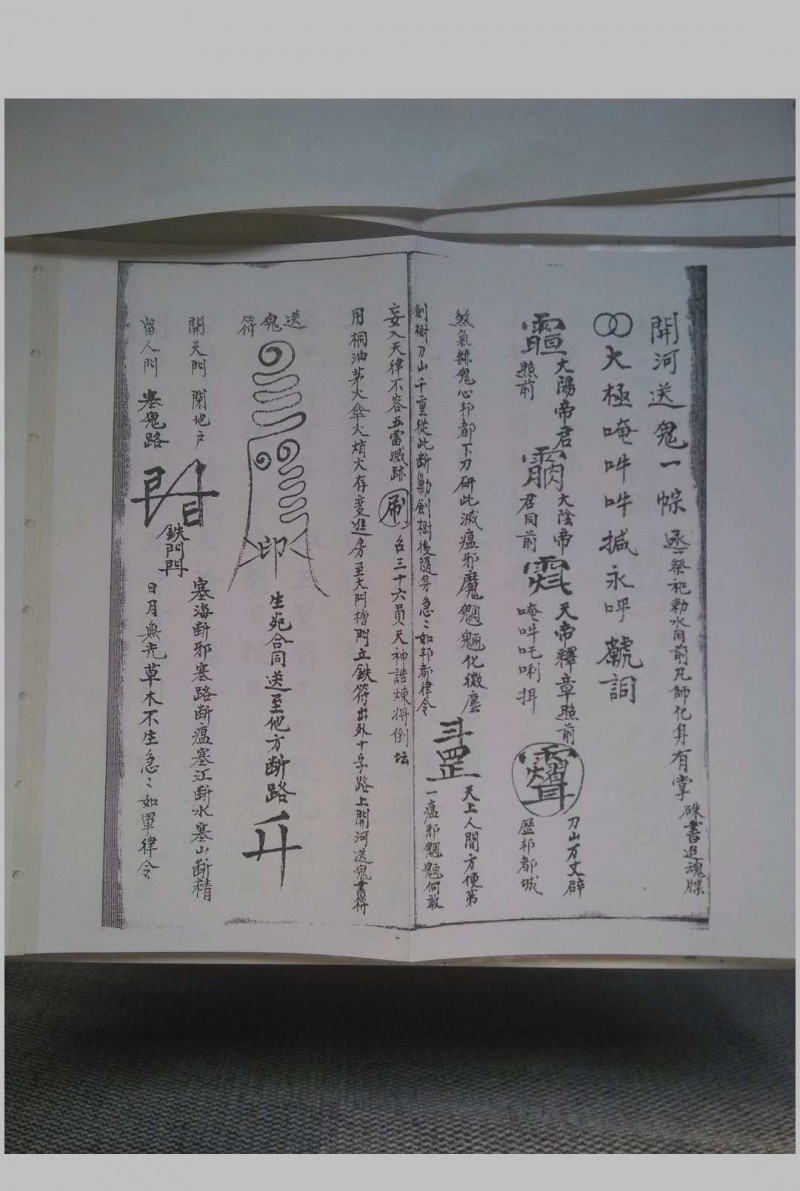 開河送鬼一幖 丞祭祀勅水同前凡師化身有掌 硃書追魂牒
大極唵吽吽搣永呼虩詞
大陽帝君照前
大陰帝君同前
天帝釋章照前
唵吽吒唎揖
刀山万丈辟
歷邦都城
煞氣 鬼心邦都下刀研此滅瘟邪魔魍魎化微塵
斗罡
天上人間方便第
一瘟邪魍魎何敢
劍樹刀山千重從此断 劍樹後隨身急〻如邦都律令
妄入天律不容五雷滅跡 刷 召三十六員天神誥煉將倒坛
用桐油茅火傘火 火存变進房至大門 門立鉄符出外十字路上開河送鬼書符
送鬼符
印
生死合同送至他方断路
開天門 閉地户
留人門 塞鬼路
鉄門閂
塞海断邪塞路断瘟塞江断水塞山断精
日月無光草木不生急〻如軍律令